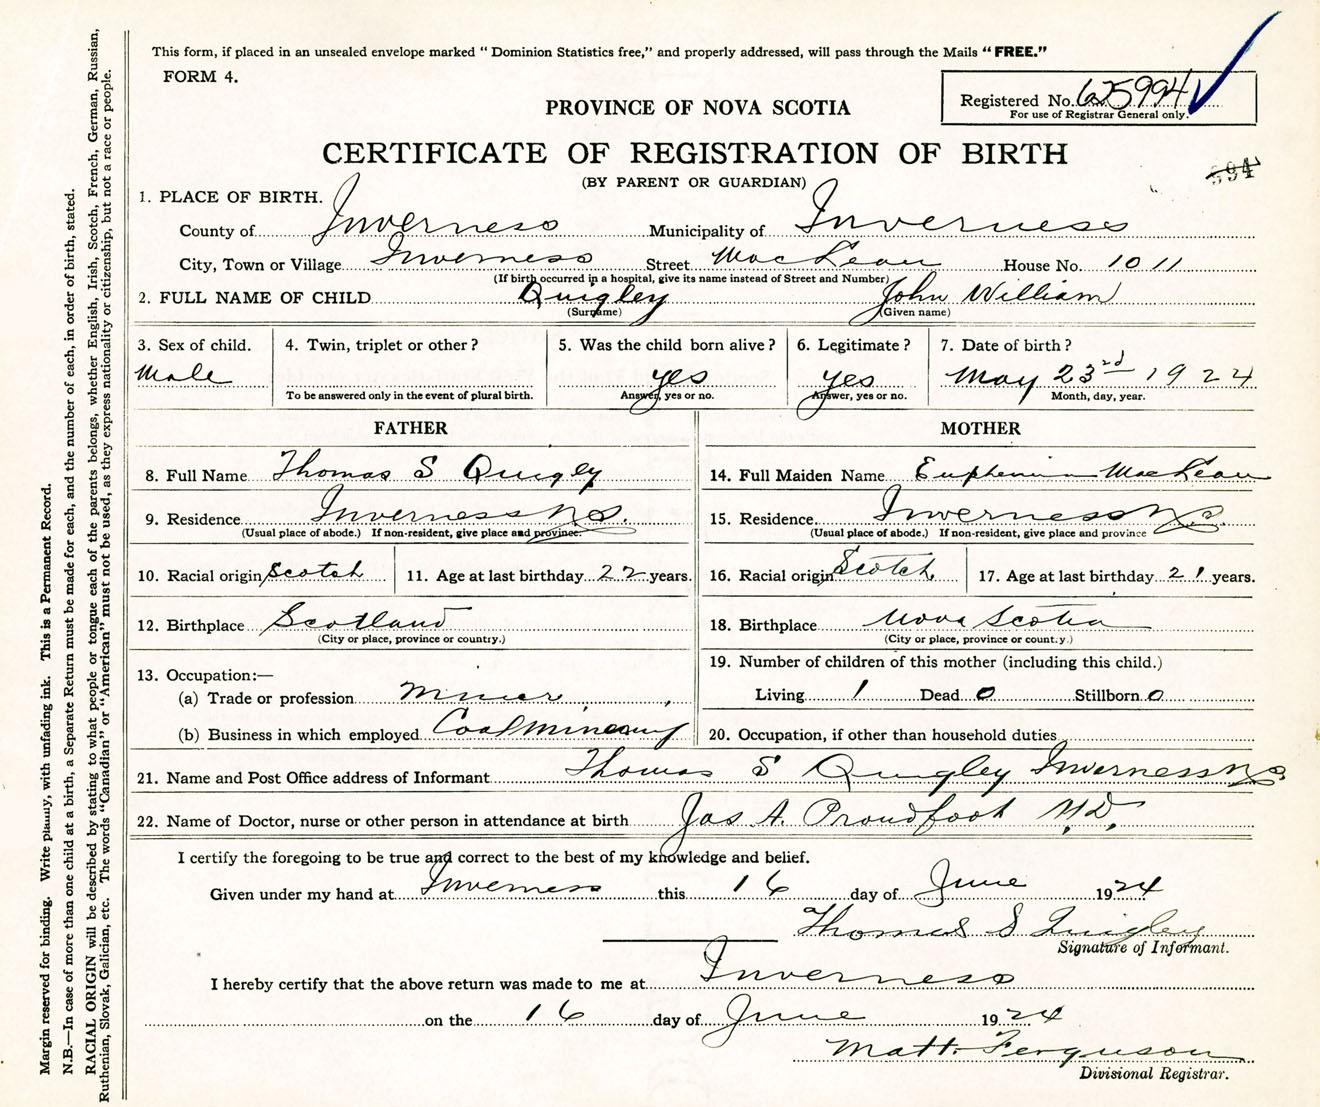 This form, if placed in an unsealed envelope marked “Dominion Statistics free,” and properly addressed, will pass through the Mails “FREE.”
FORM 4.
Registered No. 625994
For use of Registrar General only.
PROVINCE OF NOVA SCOTIA
CERTIFICATE OF REGISTRATION OF BIRTH
594
(BY PARENT OR GUARDIAN)
1. PLACE OF BIRTH.
County of Inverness Municipality of Inverness
City, Town or Village Inverness Street MacLean House No. 1011
(If birth occurred in a hospital, give its name instead of Street and Number)
2. FULL NAME OF CHILD Quigley John William
(Surname) (Given name)
3. Sex of child. 4. Twin, triplet or other? 5. Was the child born alive? 6. Legitimate? 7. Date of birth?
Male yes yes May 23rd 1924
To be answered only in the event of plural birth. Answer, yes or no. Answer, yes or no. Month, day, year.
FATHER MOTHER
8. Full Name Thomas S Quigley 14. Full Maiden Name Euphemia MacLean
9. Residence Inverness N.S. 15. Residence Inverness N.S.
(Usual place of abode.) If non-resident, give place and province. (Usual place of abode.) If non-resident, give place and province
10. Racial origin Scotch 11. Age at last birthday 22 years. 16. Racial origin Scotch 17. Age at last birthday 21 years.
12. Birthplace Scotland 18. Birthplace Nova Scotia
(City or place, province or country.) (City or place, province or country.)
13. Occupation:— 19. Number of children of this mother (including this child.)
(a) Trade or profession Miner Living 1 Dead 0 Stillborn 0
(b) Business in which employed Coal mining 20. Occupation, if other than household duties
21. Name and Post Office address of Informant Thomas S Quigley Inverness N.S.
22. Name of Doctor, nurse or other person in attendance at birth Jas A. Proudfoot M.D.
I certify the foregoing to be true and correct to the best of my knowledge and belief.
Given under my hand at Inverness this 16 day of June 1924
Thomas S Quigley
Signature of Informant.
I hereby certify that the above return was made to me at Inverness
on the 16 day of June 1924
Matt. Ferguson
Divisional Registrar.
Margin reserved for binding. Write plainly, with unfading ink. This is a Permanent Record.
N.B.—In case of more than one child at a birth, a Separate Return must be made for each, and the number of each, in order of birth, stated.
RACIAL ORIGIN will be described by stating to what people or tongue each of the parents belongs, whether English, Irish, Scotch, French, German, Russian,
Ruthenian, Slovak, Galician, etc. The words “Canadian” or “American” must not be used, as they express nationality or citizenship, but not a race or people.